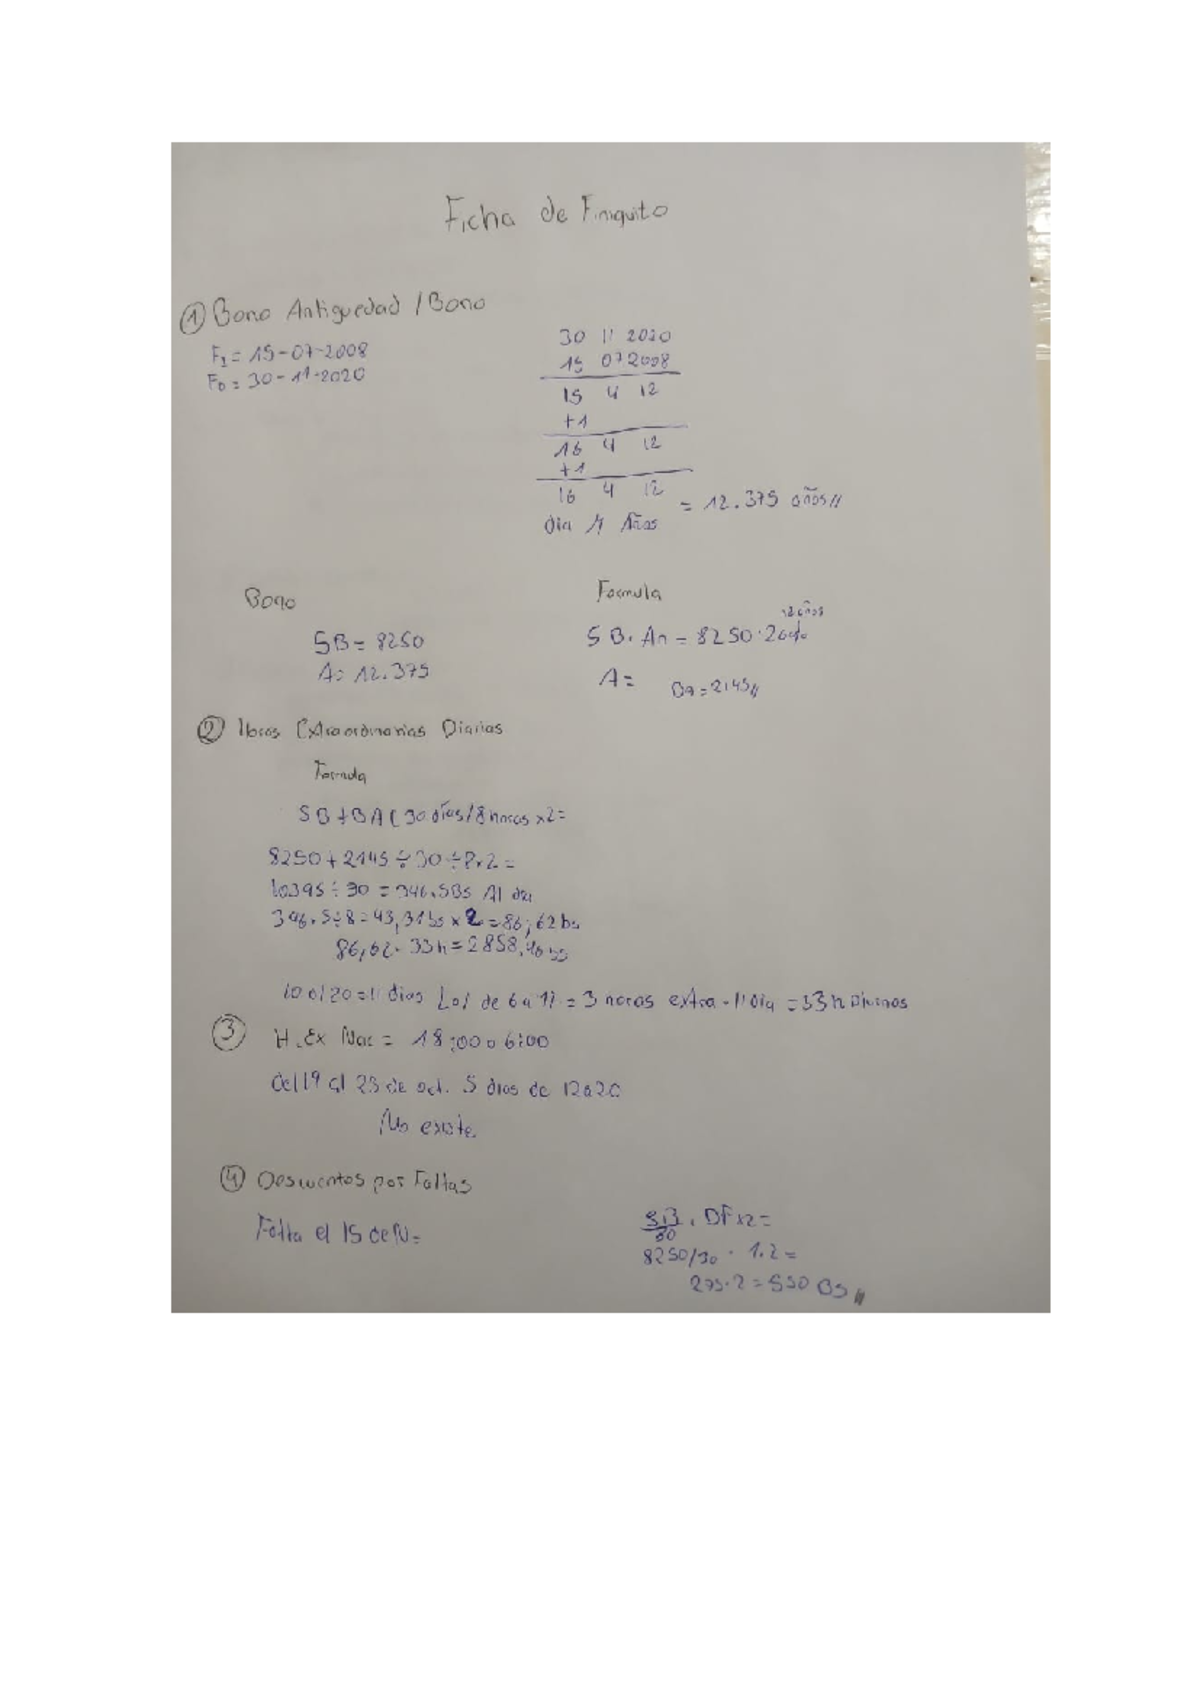 Ficha de Finiquito
① Bono Antiguedad / Bono
F1 = 15-07-2008
F0 = 30-11-2020
30 11 2020
15 07 2008
15 4 12
+1
16 4 12
+1
16 4 12
= 12.375 años//
dia Años
Bono
SB = 8250
A= 12.375
Formula
12 años
SB. An = 8250.26%
A= Ba=2145//
② Horas Extraordinarias Diarias
Formula
SB+BA(30 días/8horas x2=
8250+2145÷30÷8x2=
10395÷30=346.5Bs Al dia
346.5÷8=43,31bs x2=86,62bs
86,62.33h=2858,46bs
10 al 20=11 dias de 6 a 17 = 3 horas extra - 11 Dia = 33h Diurnas
③ H.Ex Noc = 18:00 a 6:00
Del 19 al 23 de oct. 5 dias de 12 a 20
No existe
④ Descuentos por Faltas
Falta el 15 de N=
SB/30 . DFx2=
8250/30 . 1.2=
275.2=550 Bs//